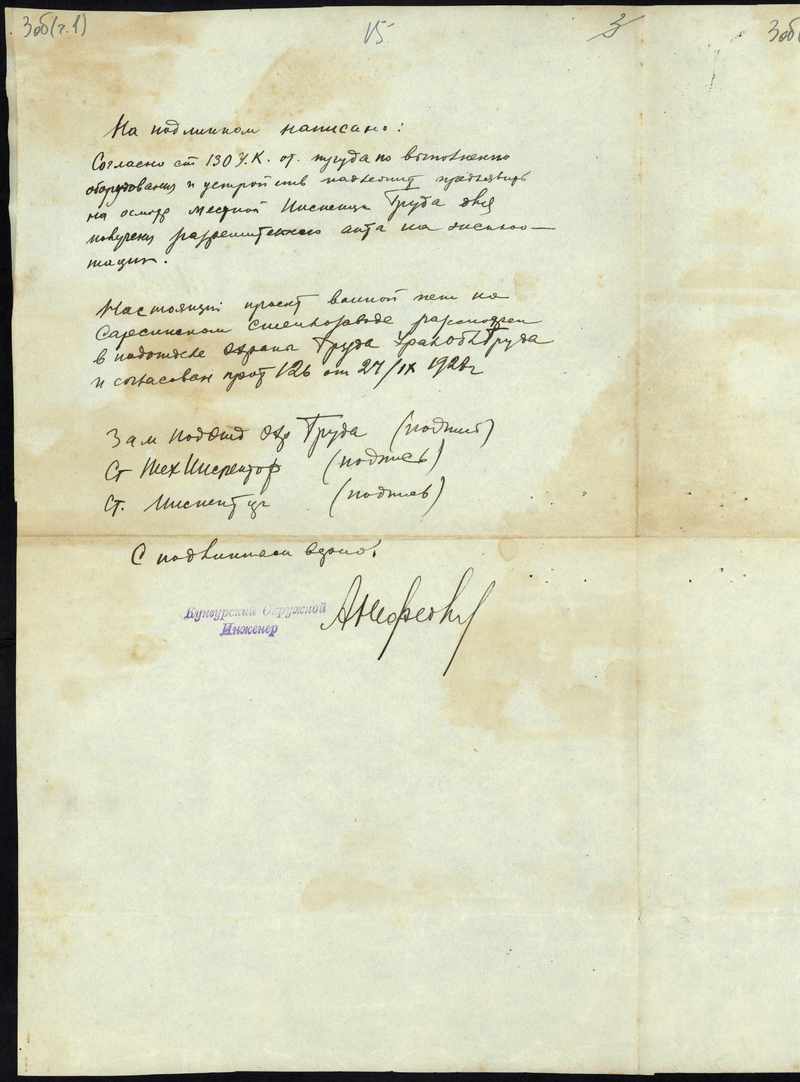 3об(ч.1)
15
3
3об(
На подлинном написано:
Согласно ст 130 У.К. от. труда по выполнению
оборудования и устройств надлежит предъявить
на осмотр местной Инспекции Труда для
получения разрешительного акта на эксплоа-
тацию.
Настоящий проект ванной печи на
Сарсинском Стеклозаводе рассмотрен
в подотделе охраны Труда УралОблТруда
и согласован прот 126 от 27/IX 1928г
Зам ПодОтд Охр Труда (подпись)
Ст ТехИнспектор (подпись)
Ст. Инспектор (подпись)
С подлинным верно:
Кунгурский Окружной
Инженер